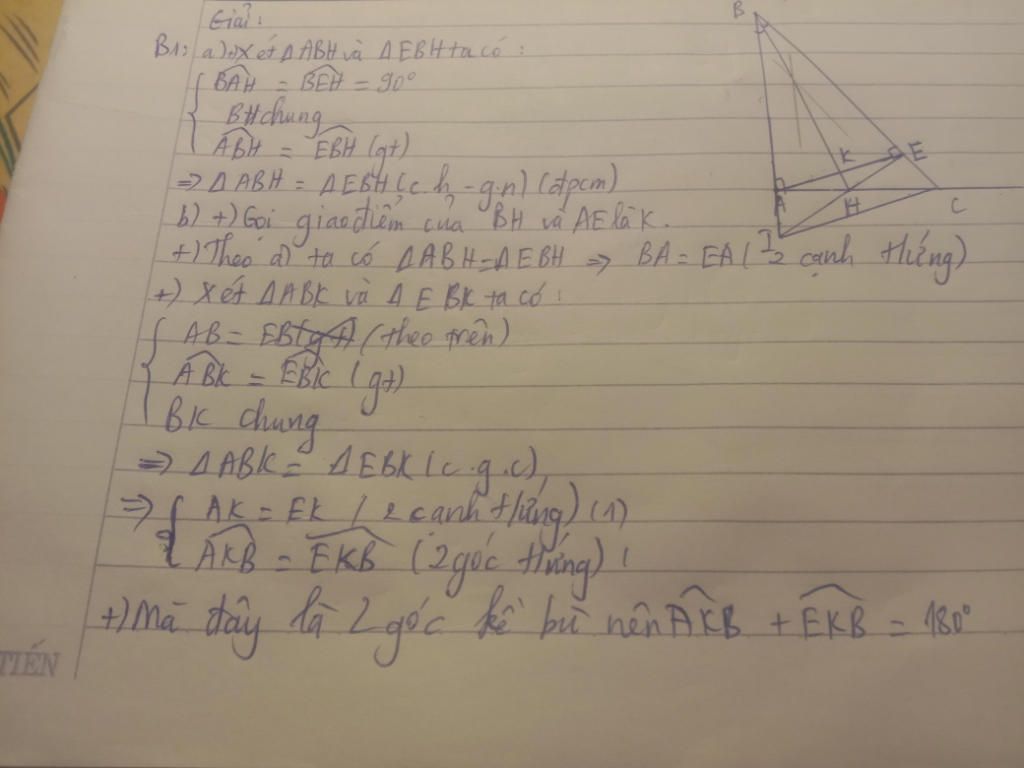 Giải:
B1: a) Xét ΔABH và ΔEBH ta có:
B̂AH = B̂EH = 90°
BH chung
ÂBH = ÊBH (gt)
⇒ ΔABH = ΔEBH (c.h - g.n) (đpcm)
b) +) Gọi giao điểm của BH và AE là K.
+) Theo a) ta có ΔABH = ΔEBH ⇒ BA = EA (2 cạnh tứng)
+) Xét ΔABK và ΔEBK ta có:
AB = EB (theo trên)
ÂBK = ÊBK (gt)
BK chung
⇒ ΔABK = ΔEBK (c.g.c)
⇒ AK = EK (2 cạnh tứng) (1)
ÂKB = ÊKB (2 góc tứng)
+) Mà đây là 2 góc kề bù nên ÂKB + ÊKB = 180°
B
K
E
A
H
C
I
TIẾN